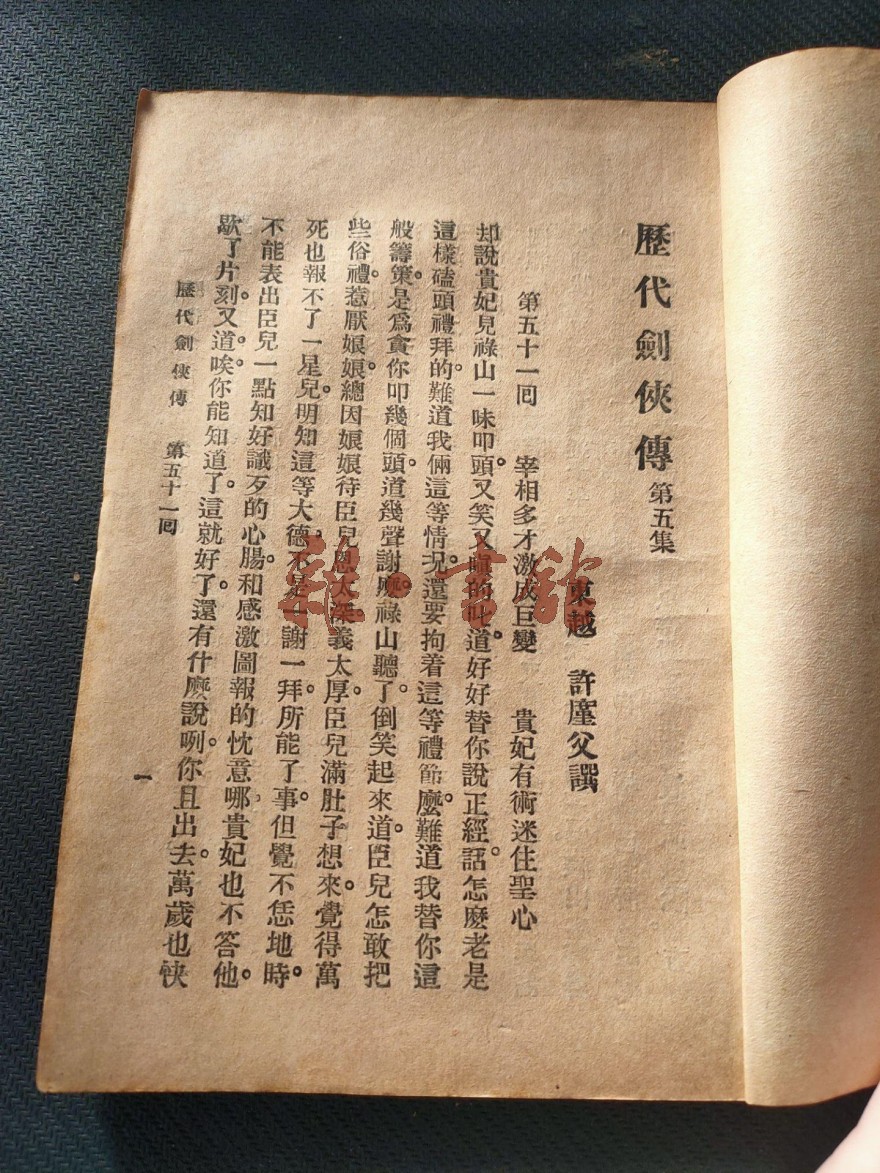 歷代劍俠傳 第五集
東越 許廑父譔
第五十一回 宰相多才激成巨變 貴妃有術迷住聖心
却說貴妃見祿山一味叩頭。又笑又嗔的叱道。好好替你說正經話。怎麼老是
這樣磕頭禮拜的。難道我倆這等情况。還要拘着這等禮節麼。難道我替你這
般籌策。是爲貪你叩幾個頭。道幾聲謝麽。祿山聽了。倒笑起來道。臣兒怎敢把
些俗禮。惹厭娘娘。總因娘娘待臣兒恩太深。義太厚。臣兒滿肚子想來。覺得萬
死也報不了一星兒。明知這等大德。不是一謝一拜。所能了事。但覺不恁地時。
不能表出臣兒一點知好識歹的心腸。和感激圖報的忱意哪。貴妃也不答他。
歇了片刻。又道。唉。你能知道了。這就好了。還有什麼說咧。你且出去。萬歲也快
歷代劍俠傳 第五十一回
一
雜·書館